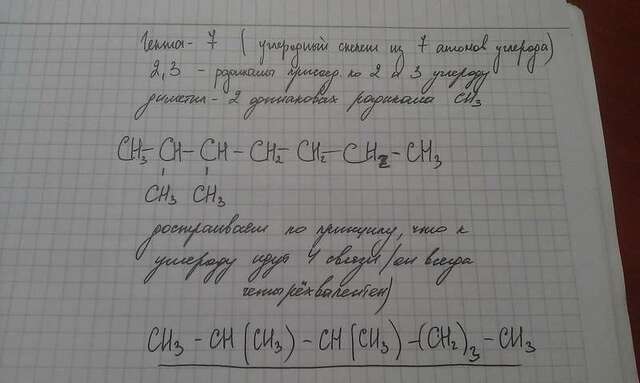 Гепта- 7 ( углеродный скелет из 7 атомов углерода)
2,3 - радикалы присоед по 2 и 3 углероду
диметил - 2 одинаковых радикала CH3
CH3 - CH - CH - CH2 - CH2 - CH2 - CH3
CH3 CH3
достраиваем по принципу, что к
углероду идут 4 связи (он всегда
четырёхвалентен)
CH3 - CH (CH3) - CH (CH3) - (CH2)3 - CH3